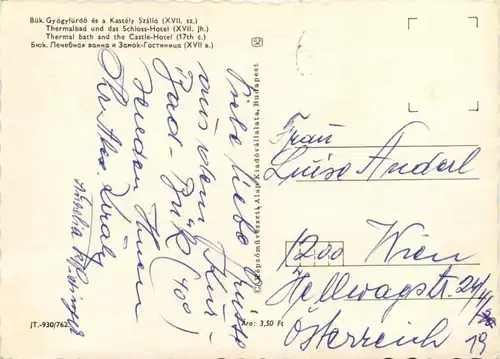 Bük. Gyógyfürdő és a Kastély Szálló (XVII. sz.)
Thermalbad und das Schloss-Hotel (XVII. Jh.)
Thermal bath and the Castle-Hotel (17th c.)
Бюк. Лечебная ванна и Замок-Гостиница (XVII в.)
Viele liebe Grüsse
aus dem Kur-
Bad - Bük (400)
senden Ihnen
Képzőművészeti Alap Kiadóvállalata, Budapest
Frau
Luise Anderl
1200 Wien
Hellwagstr. 24/
Österreich 19
JT.-930/762
Ára: 3,50 Ft